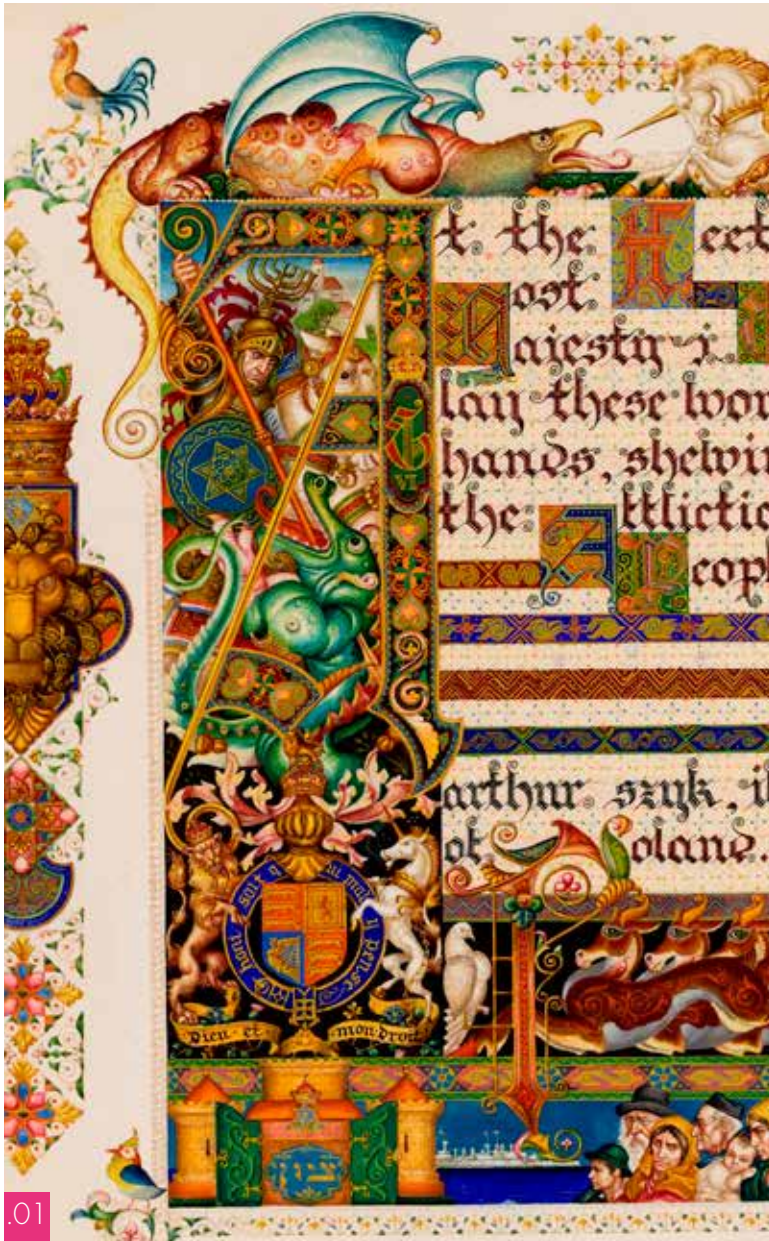 At the Feet
Most
Majesty i
lay these wor
hands, shewin
the Afflictio
Peopl
G
VI
arthur szyk, il
of Poland.
honi soit qui mal y pense
Dieu et mon droit
ציון
.01